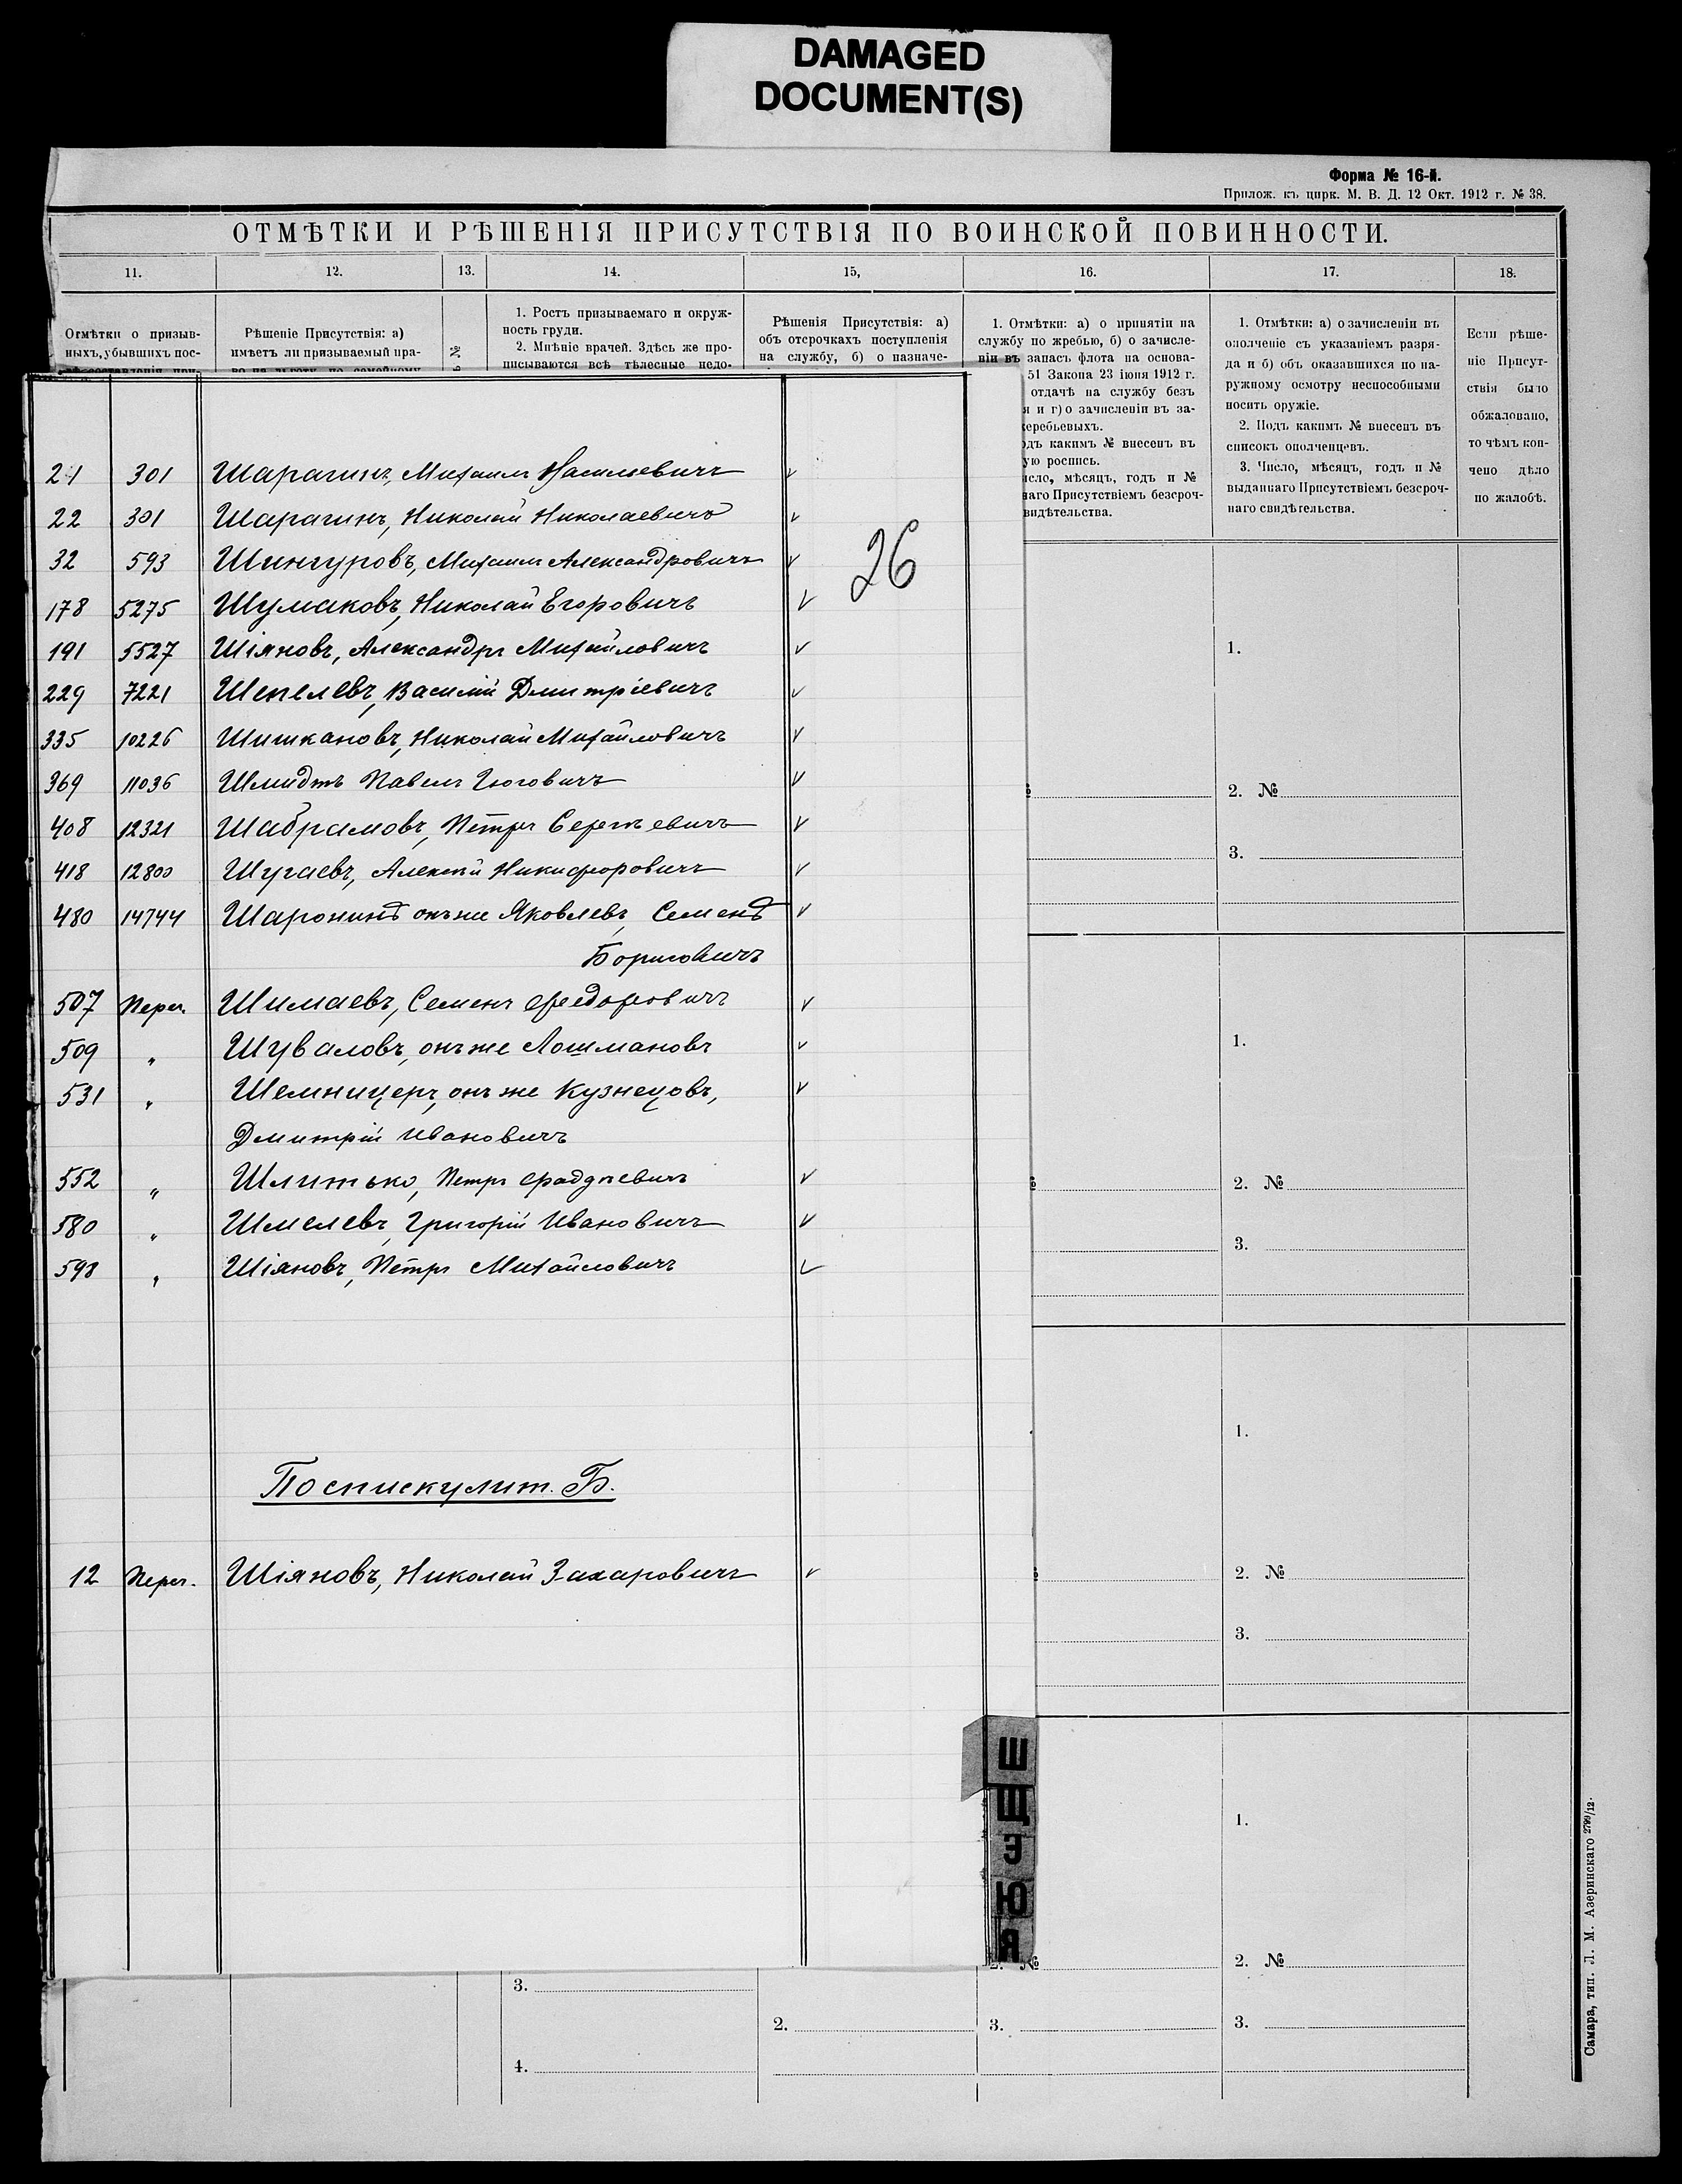 DAMAGED
DOCUMENT(S)
Форма № 16-й.
Прилож. къ цирк. М. В. Д. 12 Окт. 1912 г. № 38.
ОТМѢТКИ И РѢШЕНІЯ ПРИСУТСТВІЯ ПО ВОИНСКОЙ ПОВИННОСТИ.
11. 12. 13. 14. 15, 16. 17. 18.
Отмѣтки о призыв-
ныхъ, убывшихъ пос-
Рѣшеніе Присутствія: а)
имѣетъ ли призываемый пра-
во на льготу по семейному
№
1. Ростъ призываемаго и окруж-
ность груди.
2. Мнѣніе врачей. Здѣсь же про-
писываются всѣ тѣлесные недо-
Рѣшенія Присутствія: а)
объ отсрочкахъ поступленія
на службу, б) о назначе-
1. Отмѣтки: а) о принятіи на
службу по жребью, б) о зачисле-
ніи въ запасъ флота на основа-
51 Закона 23 іюня 1912 г.
отдачѣ на службу безъ
и г) о зачисленіи въ за-
жеребьевыхъ.
одъ какимъ № внесенъ въ
ую роспись.
исло, мѣсяцъ, годъ и №
наго Присутствіемъ безсроч-
видѣтельства.
1. Отмѣтки: а) о зачисленіи въ
ополченіе съ указаніемъ разря-
да и б) объ оказавшихся по на-
ружному осмотру неспособными
носить оружіе.
2. Подъ какимъ № внесенъ въ
списокъ ополченцевъ.
3. Число, мѣсяцъ, годъ и №
выданнаго Присутствіемъ безсроч-
наго свидѣтельства.
Если рѣше-
ніе Присут-
ствія было
обжаловано,
то чѣмъ кон-
чено дѣло
по жалобѣ.
21 301 Шарагинъ, Михаилъ Васильевичъ
22 301 Шарагинъ, Николай Николаевичъ
26
32 593 Шингуровъ, Михаилъ Александровичъ
178 5275 Шумаковъ, Николай Егоровичъ
191 5527 Шіяновъ, Александръ Михайловичъ
229 7221 Шепелевъ, Василій Дмитріевичъ
335 10226 Шишкановъ, Николай Михайловичъ
369 11036 Шмидтъ Павелъ
408 12321 Шабрамовъ, Петръ Сергѣевичъ
418 12800 Шугаевъ, Алексѣй Никифоровичъ
480 14744 Шаронинъ онъ же Яковлевъ, Семенъ
Борисовичъ
507 Переч. Шимаевъ, Семенъ Федоровичъ
509 " Шуваловъ, онъ же Лошмановъ
531 " Шемницеръ, онъ же Кузнецовъ,
Дмитрій Ивановичъ
552 " Шлитько, Петръ Фаддѣевичъ
580 " Шмелевъ, Григорій Ивановичъ
598 " Шіяновъ, Петръ Михайловичъ
По списку лит. Б.
12 Переч. Шіяновъ, Николай Захаровичъ
1.
2. №
3.
1.
2. №
3.
1.
2. №
3.
1.
2. №
3.
Ш
Щ
Э
Ю
Я
2. №
3.
3.
2.
4.
Самара, тип. Л. М. Азеринскаго 2799/12.